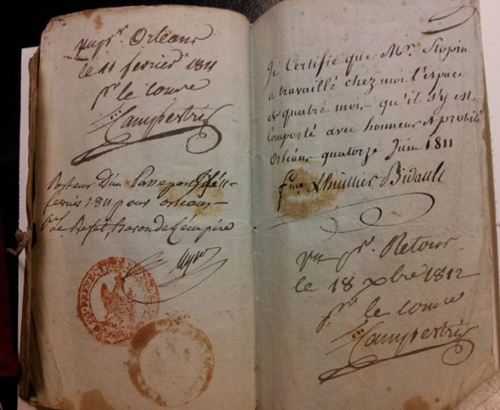 vu pr. Orléans
le 11 février 1811
pr le comre
Campestris
Porteur D'un Passeport
fevrier 1811 pour orléans
Le Préfet, Baron de L'empire
Je Certifie que Mr.
a travaillé chez moi l'espace
de quatre mois qu'il s'y est
Comporté avec honneur & probité
Orléans quatorze Juin 1811
Lhuillier Bidault
vu pr. Retour
le 18 xbre 1812
pr le comre
Campestris